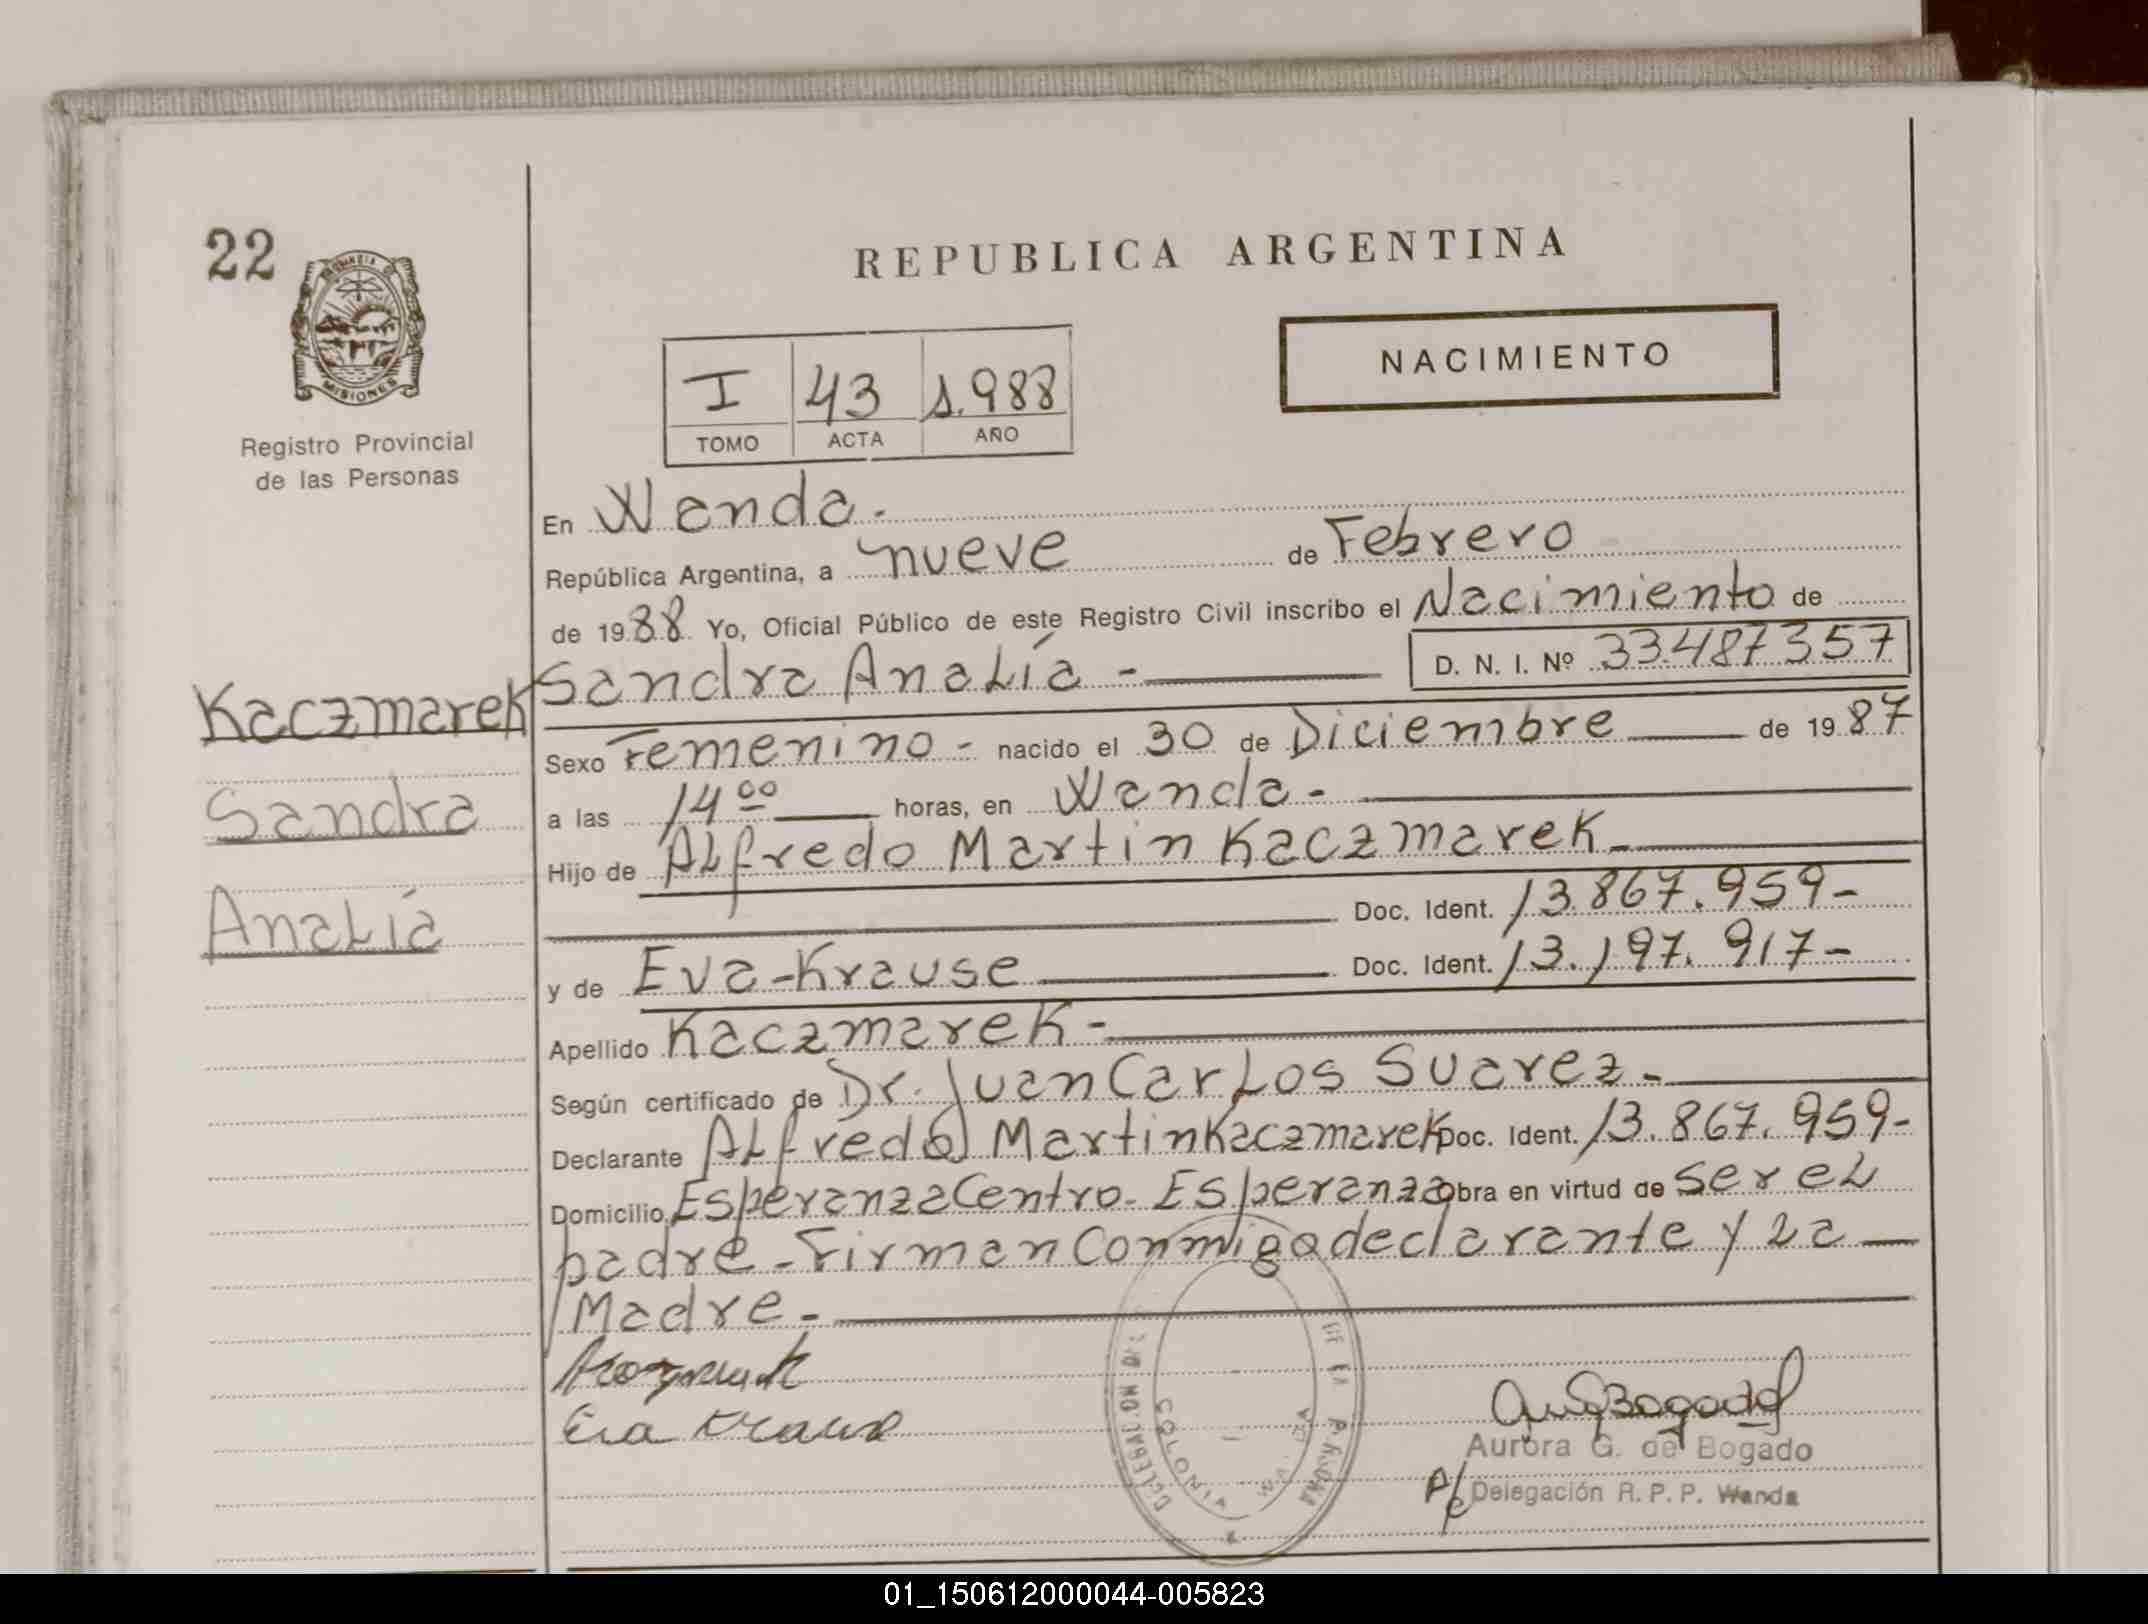 22
PROVINCIA DE
MISIONES
Registro Provincial
de las Personas
REPUBLICA ARGENTINA
NACIMIENTO
I 43 1.988
TOMO ACTA AÑO
En Wanda.
República Argentina, a nueve de Febrero
de 1988. Yo, Oficial Público de este Registro Civil inscribo el Nacimiento de
Sandra Analía - D. N. I. Nº 33.487357
Kaczmarek
Sandra
Analía
Sexo Femenino - nacido el 30 de Diciembre de 1987
a las 14 00 horas, en Wanda -
Hijo de Alfredo Martin Kaczmarek -
Doc. Ident. 13.867.959-
y de Eva - Krause Doc. Ident. 13.197.917-
Apellido Kaczmarek -
Según certificado de Dr. Juan Carlos Suarez -
Declarante Alfredo Martin Kaczmarek Doc. Ident. 13.867.959-
Domicilio Esperanza Centro - Esperanza obra en virtud de ser el
padre - Firman Conmigo declarante y la
Madre -
Eva Kraus
COLONIA WANDA
Aurora G. de Bogado
P/e Delegación R. P. P. Wanda
01_150612000044-005823